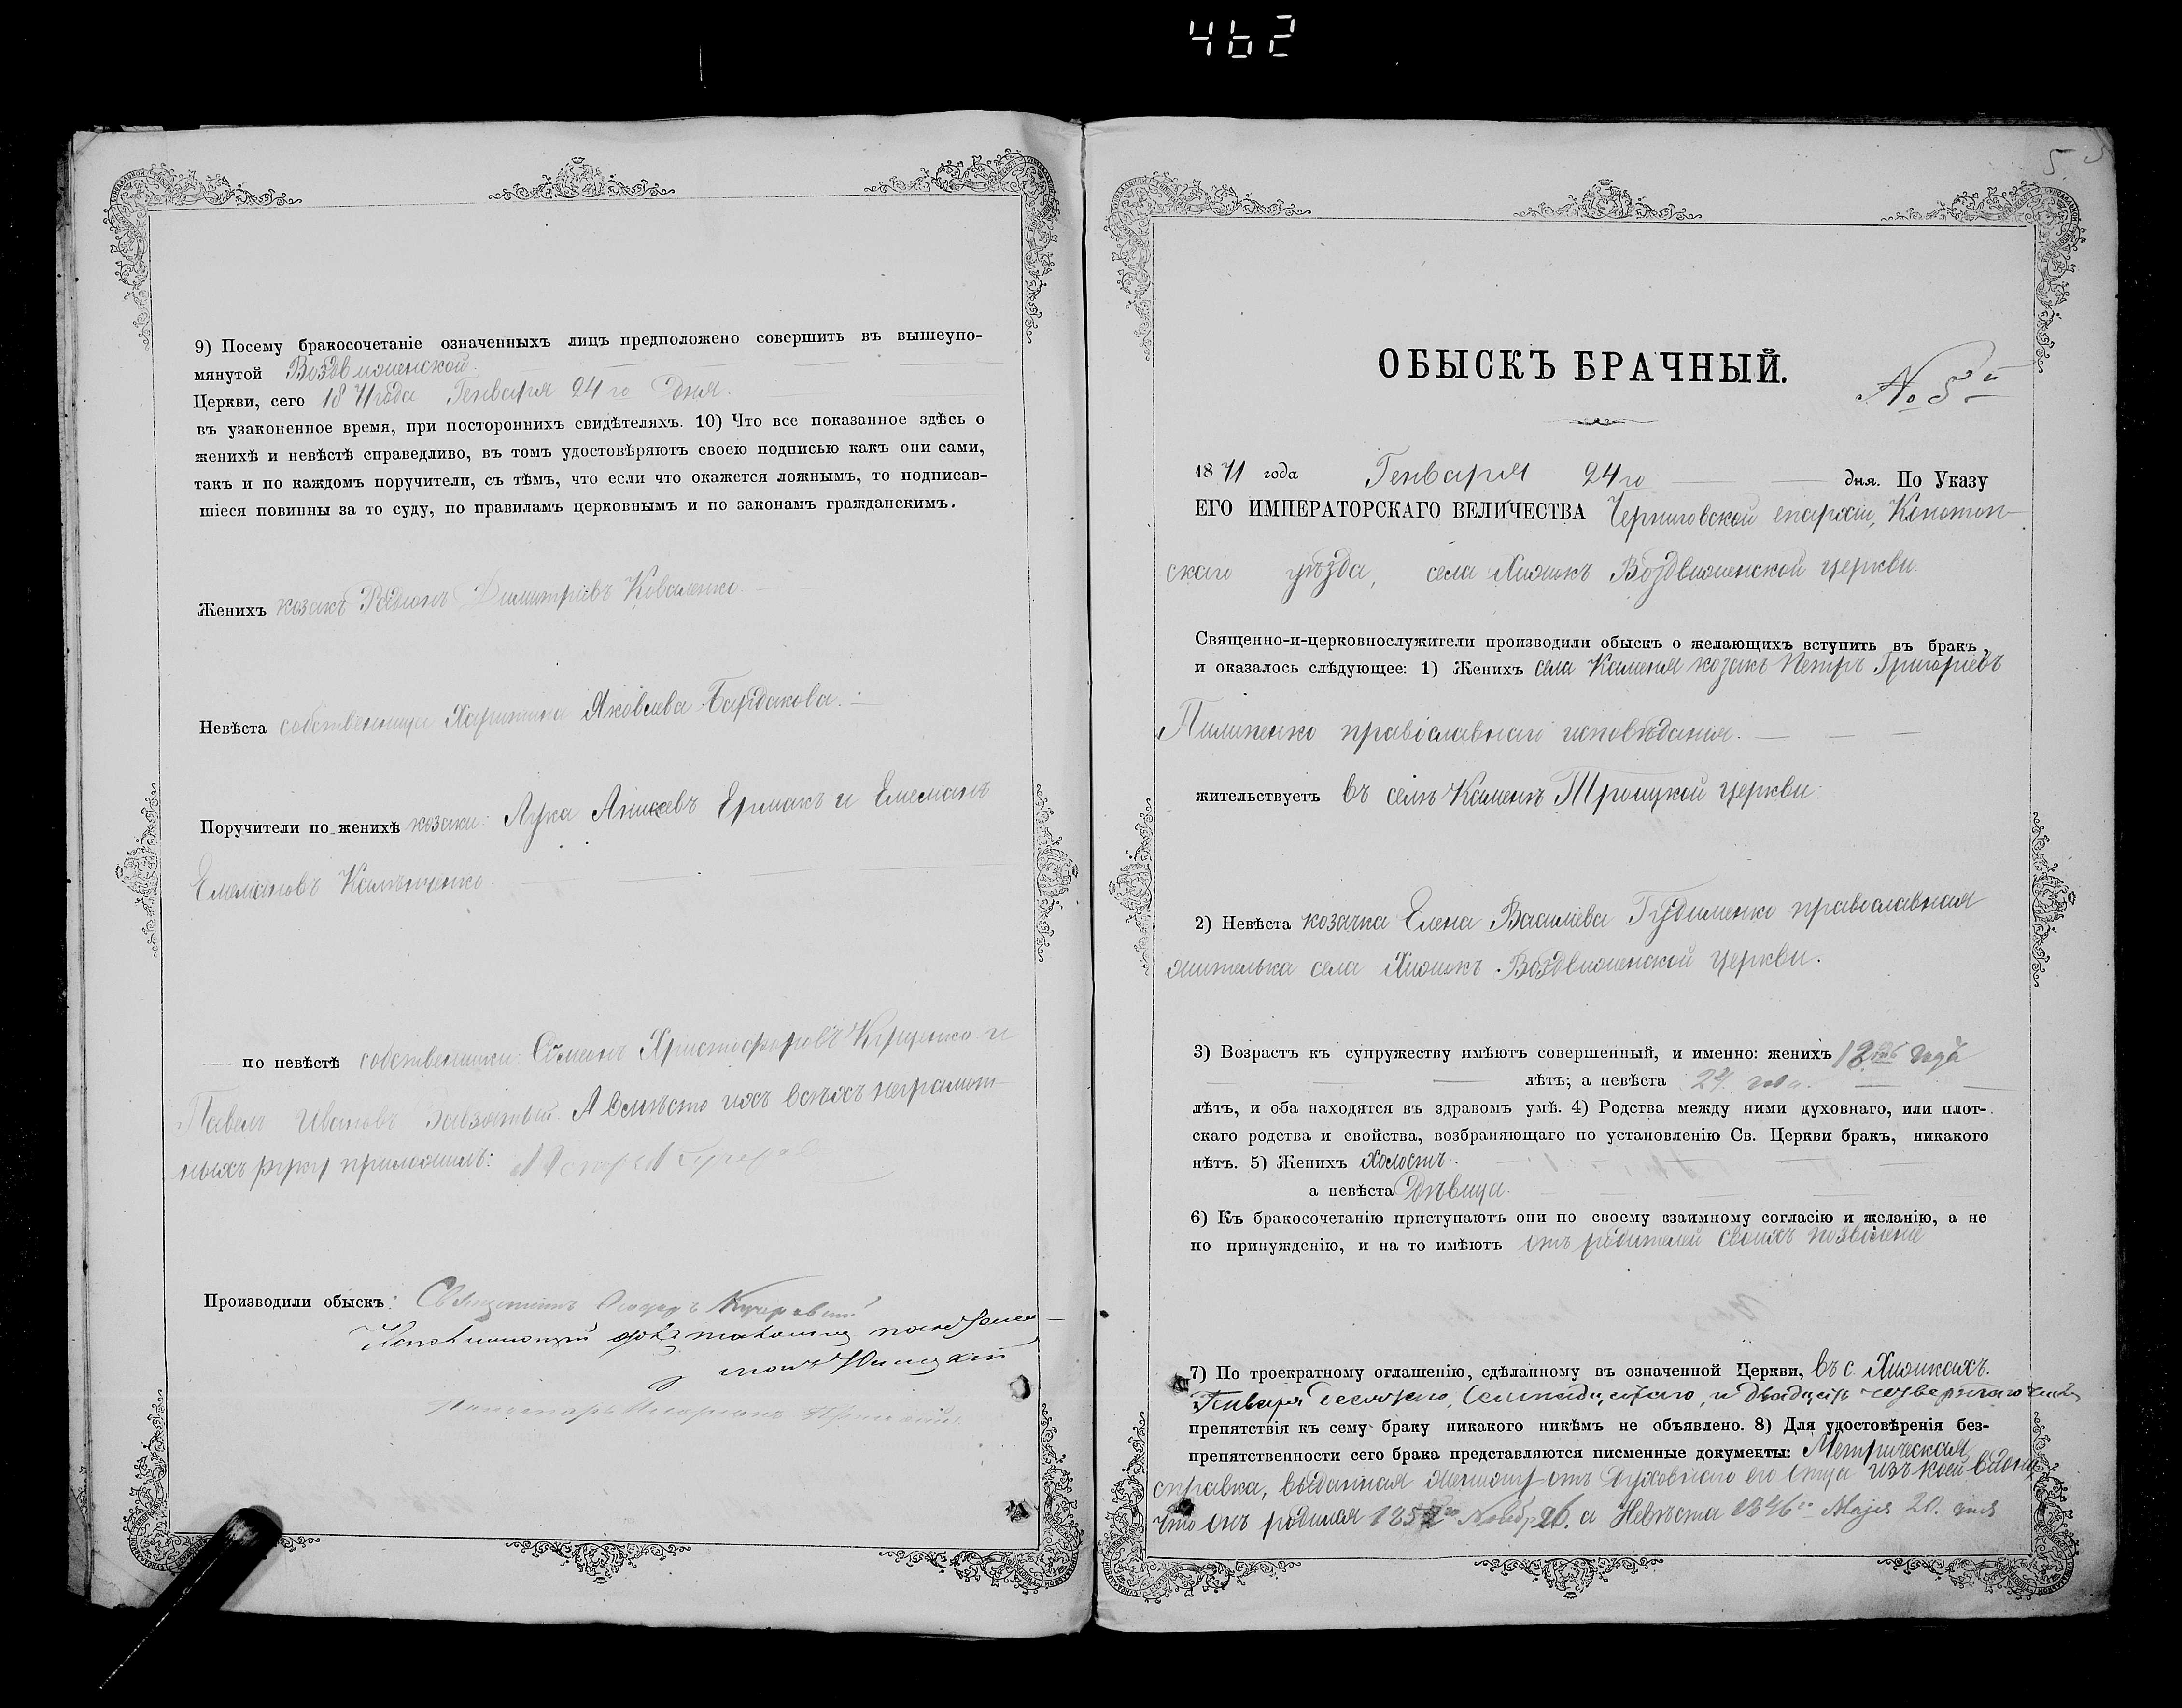 462
9) Посему бракосочетаніе означенныхъ лицъ предположено совершить въ вышеупо-
мянутой Воздвиженской
Церкви, сего 1871 года Генваря 24го дня.
въ узаконенное время, при постороннихъ свидѣтеляхъ. 10) Что все показанное здѣсь о
женихѣ и невѣстѣ справедливо, въ томъ удостовѣряютъ своею подписью какъ они сами,
такъ и по каждомъ поручители, съ тѣмъ, что если что окажется ложнымъ, то подписав-
шіеся повинны за то суду, по правиламъ церковнымъ и по законамъ гражданскимъ.
Женихъ козакъ Родіонъ Димитріевъ Коваленко.
Невѣста собственница Харитина Яковлева Бардакова.
Поручители по женихѣ козаки: Лука Аникіевъ Ермакъ и Емеліанъ
Емеліановъ
— по невѣстѣ собственники Сѵмеонъ Христофоровъ Куценко и
Павелъ Ивановъ А вмѣсто ихъ всѣхъ неграмот-
ныхъ руку приложилъ:
Производили обыскъ: Священникъ
5.
ОБЫСКЪ БРАЧНЫЙ.
№ 5й
1871 года Генваря 24го дня. По Указу
ЕГО ИМПЕРАТОРСКАГО ВЕЛИЧЕСТВА Черниговской епархіи, Конотоп-
скаго уѣзда, села Хижокъ Воздвиженской церкви.
Священно-и-церковнослужители производили обыскъ о желающихъ вступить въ бракъ,
и оказалось слѣдующее: 1) Женихъ села Каменя козакъ Петръ Григоріевъ
Пилипенко православнаго исповѣданія.
жительствуетъ въ селѣ Каменѣ Троицкой церкви:
2) Невѣста козачка Елена Василіева Гудименко православная
жителька села Хижокъ Воздвиженской церкви.
3) Возрастъ къ супружеству имѣютъ совершенный, и именно: женихъ 18 года
лѣтъ; а невѣста 24 года.
лѣтъ, и оба находятся въ здравомъ умѣ. 4) Родства между ними духовнаго, или плот-
скаго родства и свойства, возбраняющаго по установленію Св. Церкви бракъ, никакого
нѣтъ. 5) Женихъ Холостъ.
а невѣста Дѣвица.
6) Къ бракосочетанію приступаютъ они по своему взаимному согласію и желанію, а не
по принужденію, и на то имѣютъ отъ родителей своихъ позволеніе
7) По троекратному оглашенію, сдѣланному въ означенной Церкви, въ с. Хижкахъ.
Генваря семнадцатаго, и двадцать четвертаго чиселъ
препятствія къ сему браку никакого никѣмъ не объявлено. 8) Для удостовѣренія без-
препятственности сего брака представляются писменные документы: Метрическая
справка, выданная жениху отъ Духовнаго его Отца изъ коей видно
что онъ родился Ноябр. 26. а Невѣста 1846го Маія 20. дня